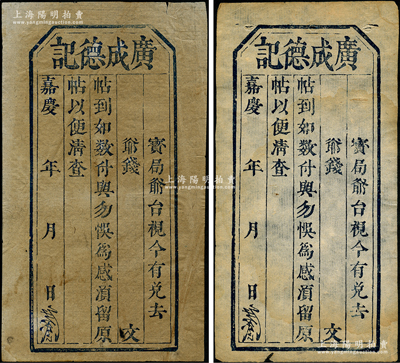 上海陽明拍賣
www.yangmingauction.com
廣成德記
寳局爺台視今有兑去
爺錢
文
帖到如數付與勿悮爲感湏留原
帖以便清查
嘉慶 年 月 日
上海陽明拍賣
www.yangmingauction.com
廣成德記
寳局爺台視今有兑去
爺錢
文
帖到如數付與勿悮爲感湏留原
帖以便清查
嘉慶 年 月 日